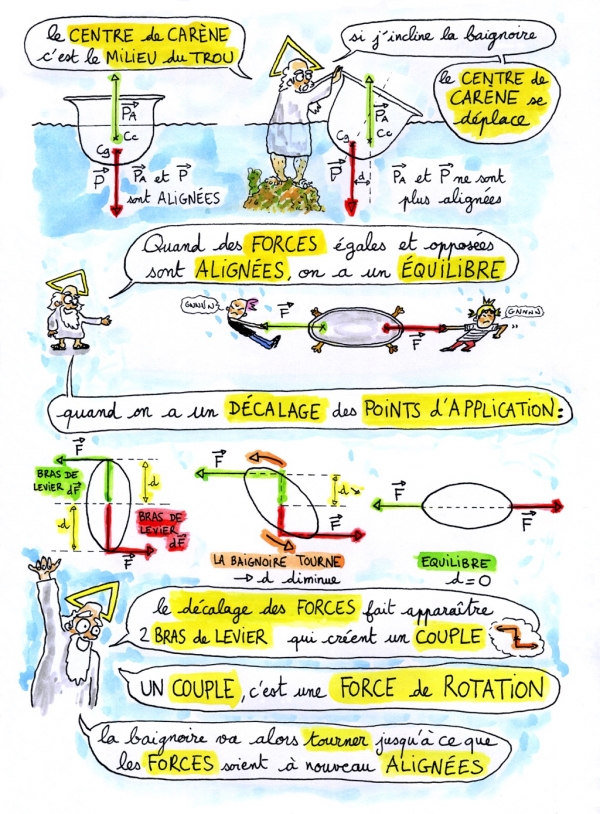 le CENTRE de CARÈNE
c'est le MILIEU du TROU
si j'incline la baignoire
le CENTRE de
CARÈNE se
déplace
PA
Cc
Cg
P
PA et P
sont ALIGNÉES
PA
Cc
Cg
P
d
PA et P ne sont
plus alignées
Quand des FORCES égales et opposées
sont ALIGNÉES, on a un ÉQUILIBRE
GNNNIN
F
F
GNNNN
quand on a un DÉCALAGE des POINTS d'APPLICATION :
F
BRAS DE
LEVIER dF
d
d
BRAS DE
LEVIER
dF
F
F
d ↘
F
LA BAIGNOIRE TOURNE
→ d diminue
F
F
EQUILIBRE
d = 0
le décalage des FORCES fait apparaître
2 BRAS de LEVIER qui créent un COUPLE
UN COUPLE, c'est une FORCE de ROTATION
la baignoire va alors tourner jusqu'à ce que
les FORCES soient à nouveau ALIGNÉES